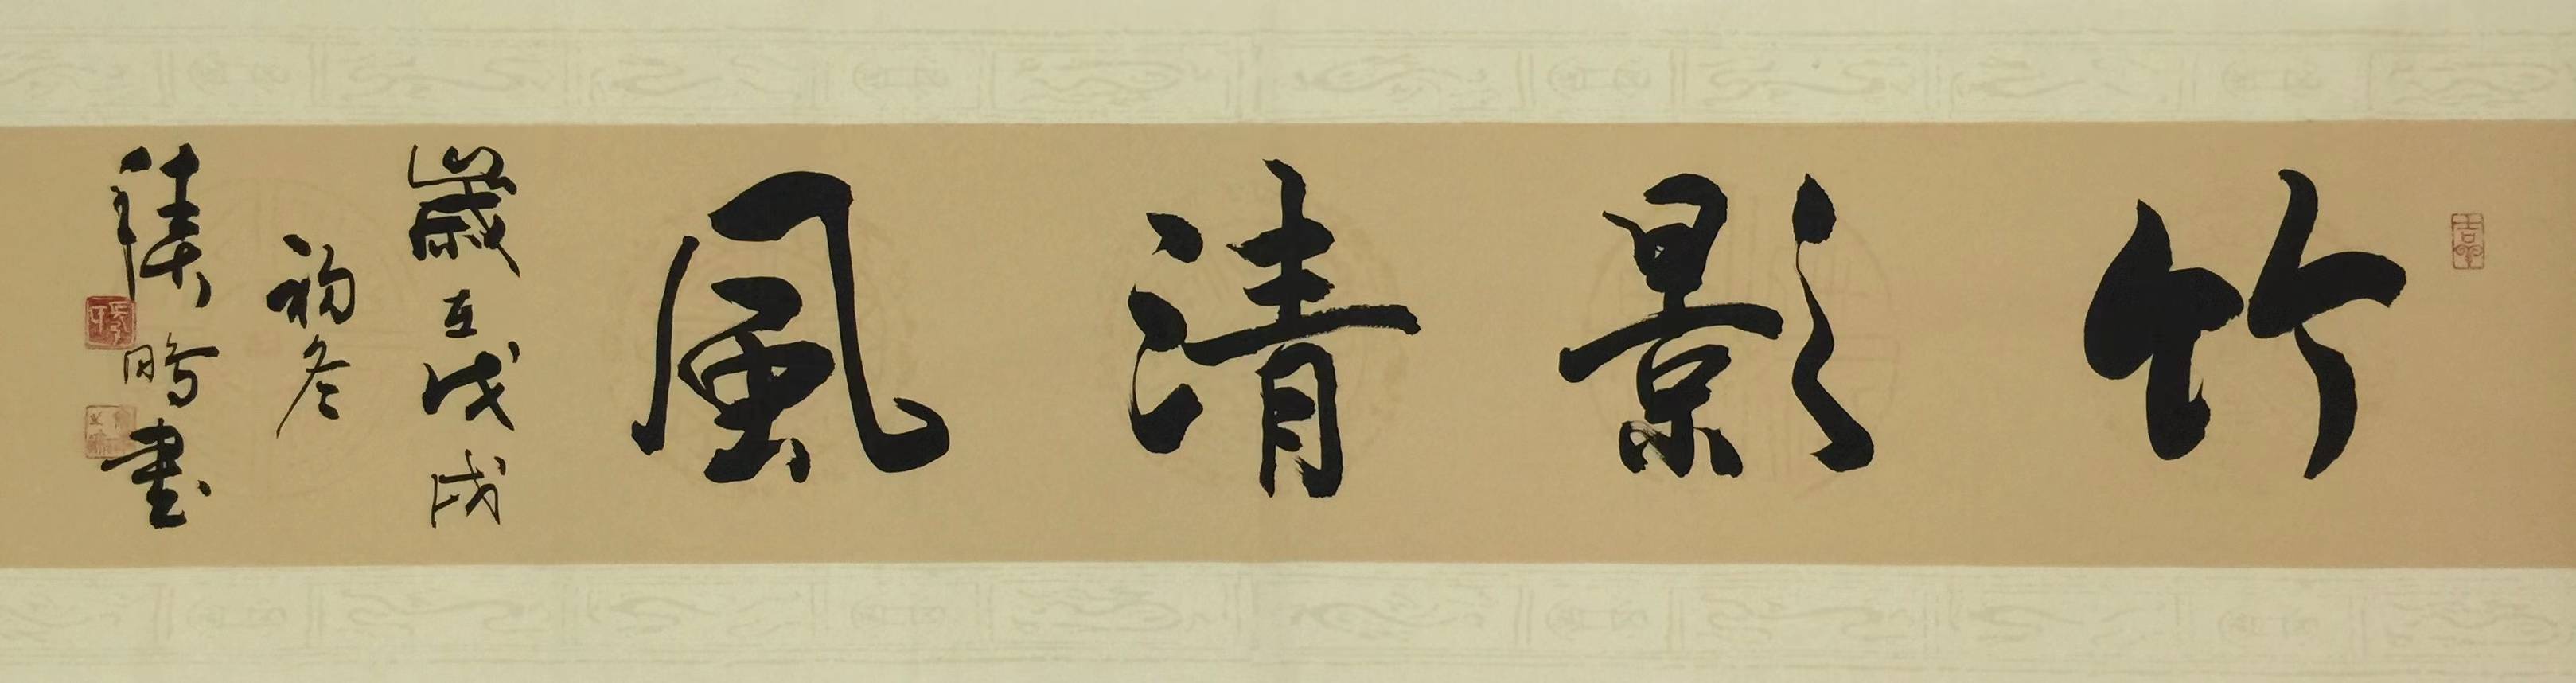 竹影清風
歲在戊戌
初冬
陳鵬書